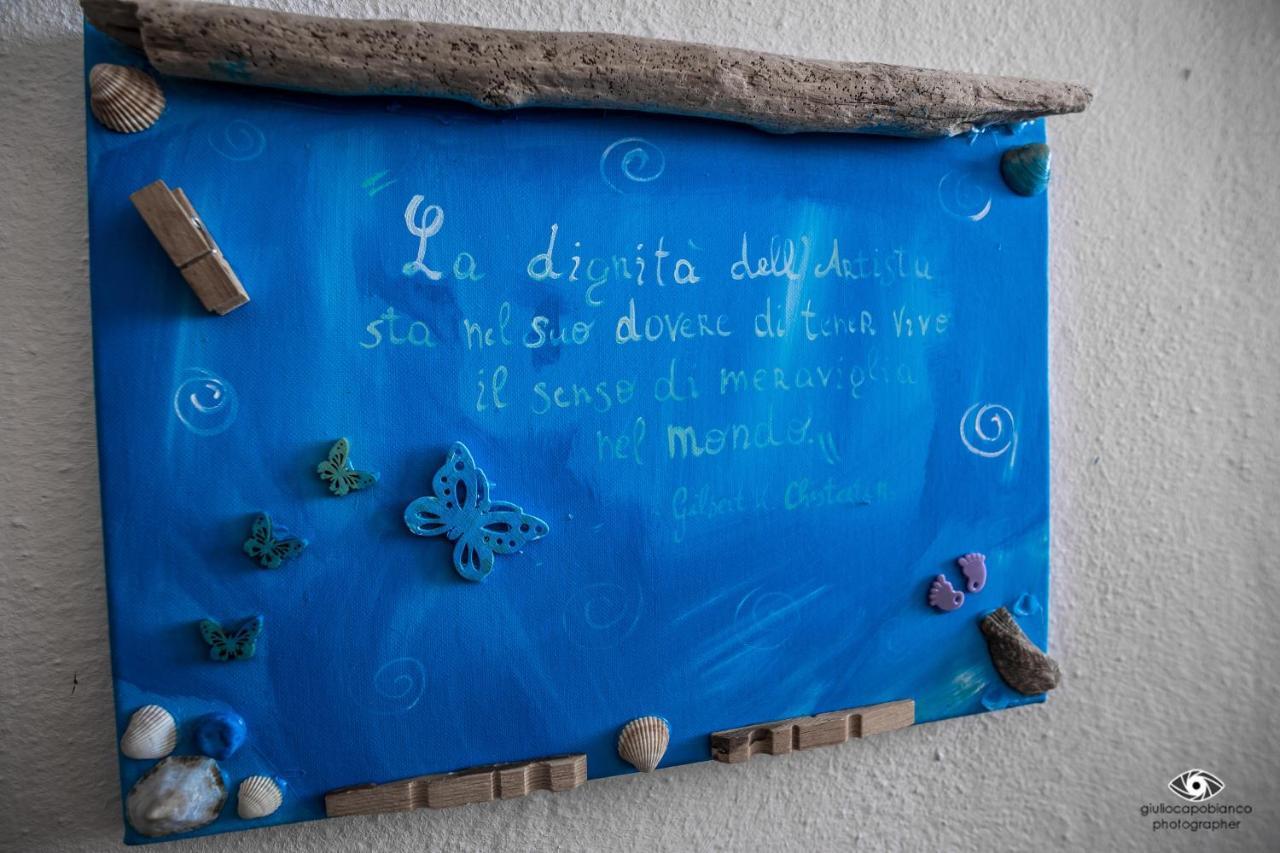 La dignità dell'Artista
sta nel suo dovere di tener vivo
il senso di meraviglia
nel mondo."
Gilbert K. Chesterton
giuliocapobianco
photographer